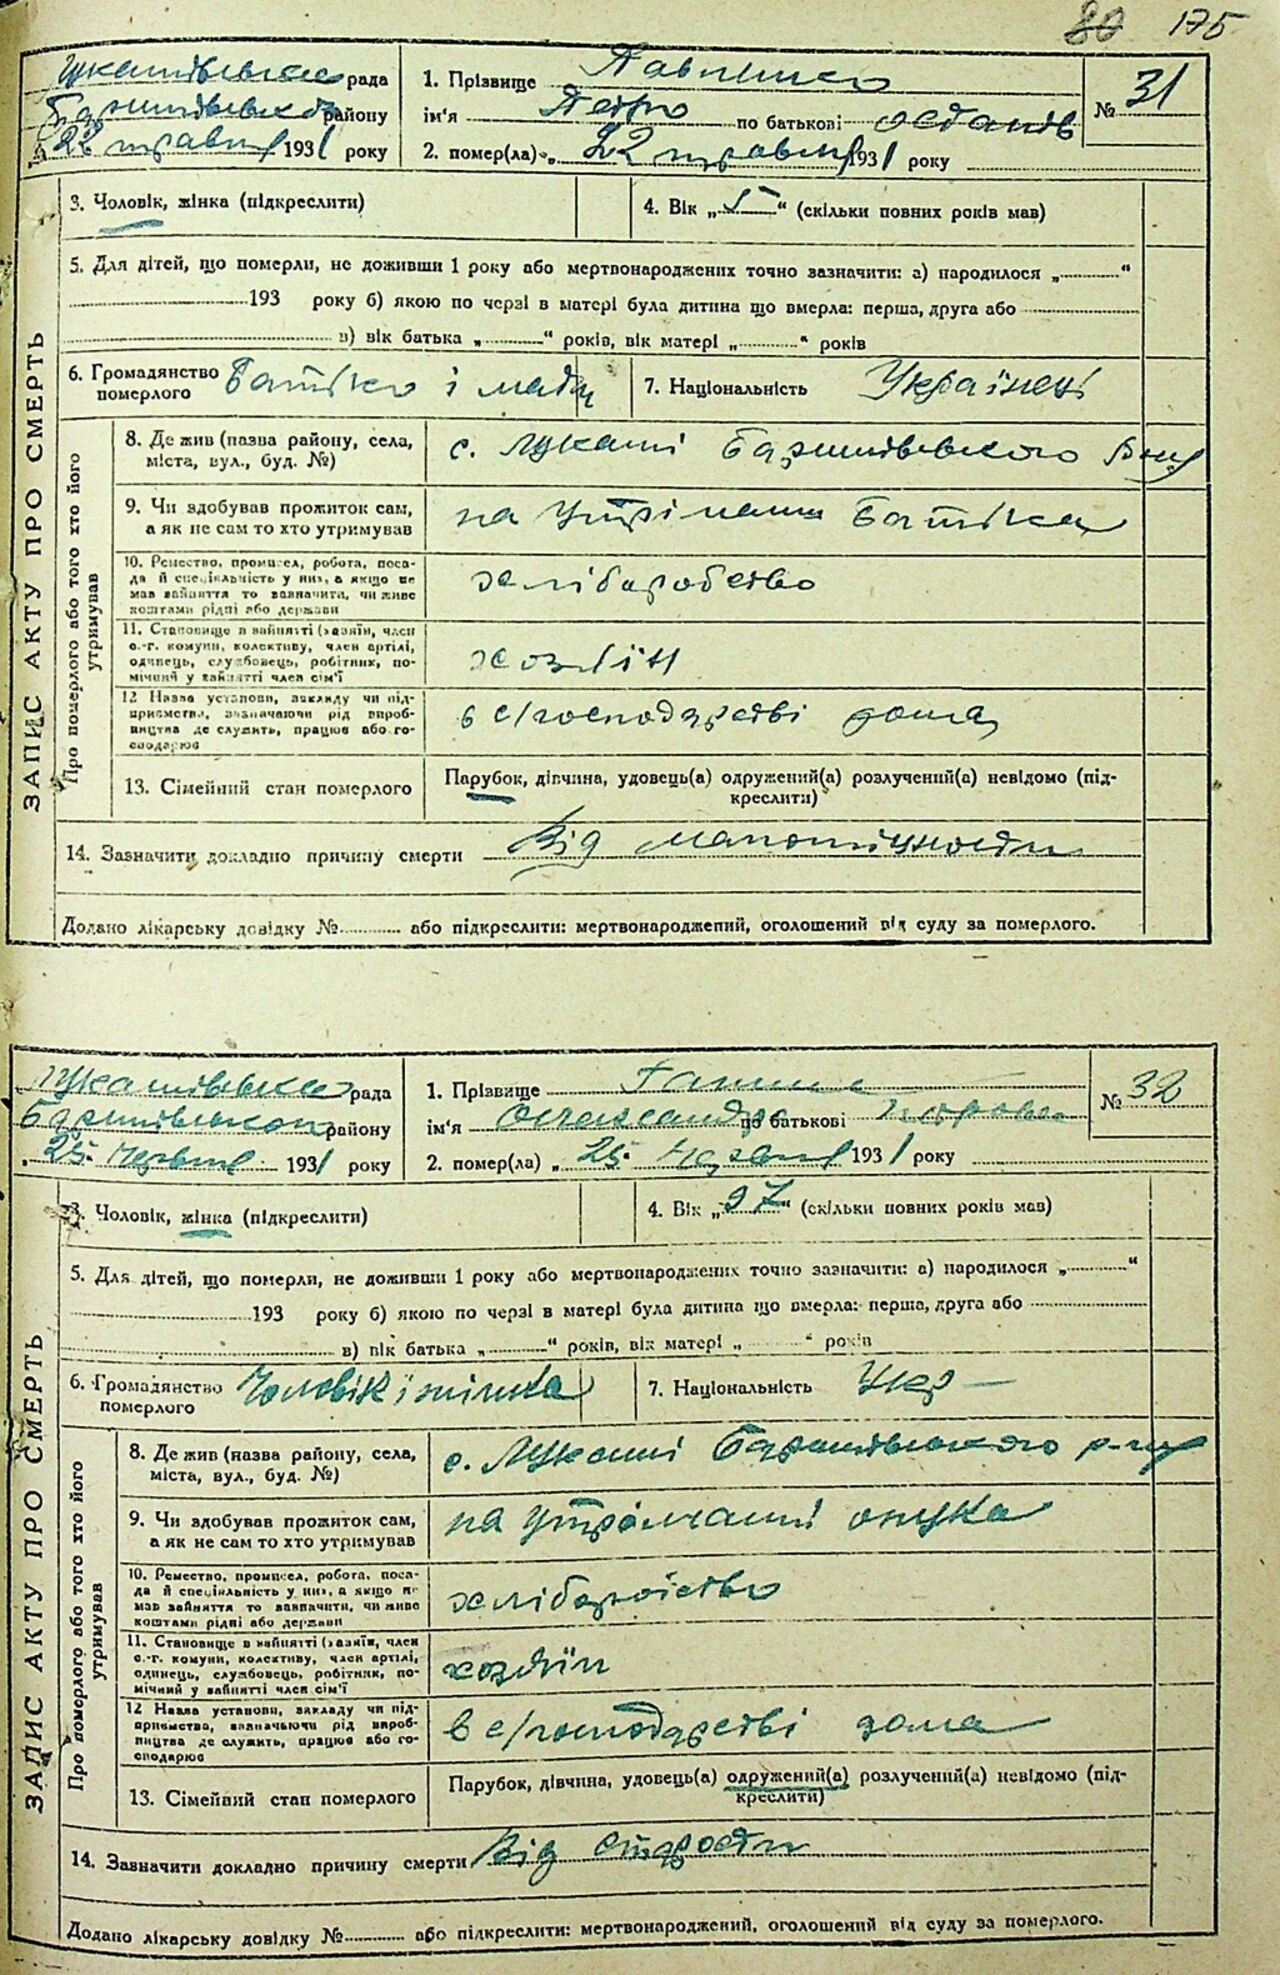 80 175
Лукашівська рада
Баришівського району
22 травня 1931 року
1. Прізвище Павленко
ім'я Петро по батькові Остапів
2. помер(ла) „ 22 травня 1931 року
№ 31
ЗАПИС АКТУ ПРО СМЕРТЬ
3. Чоловік, жінка (підкреслити)
4. Вік „5“ (скільки повних років мав)
5. Для дітей, що померли, не доживши 1 року або мертвонароджених точно зазначити: а) народилося „ “
193 року б) якою по черзі в матері була дитина що вмерла: перша, друга або
в) вік батька „ “ років, вік матері „ “ років
6. Громадянство
померлого
Батько і мати
7. Національність
Українці
Про померлого або того хто його
утримував
8. Де жив (назва району, села,
міста, вул., буд. №)
с. Лукаші Баришівського р-ну
9. Чи здобував прожиток сам,
а як не сам то хто утримував
на утриманні батька
10. Ремество, промисел, робота, поса-
да й спеціяльність у них, а якщо не
мав зайняття то зазначити, чи живе
коштами рідні або держави
хліборобство
11. Становище в зайнятті (хазяїн, член
с.-г. комуни, колективу, член артілі,
одинець, службовець, робітник, по-
мічний у зайнятті член сім'ї
хозяїн
12 Назва установи, закладу чи під-
приємства, зазначаючи рід вироб-
ництва де служить, працює або го-
сподарює
в с/господарстві дома
13. Сімейний стан померлого
Парубок, дівчина, удовець(а) одружений(а) розлучений(а) невідомо (під-
креслити)
14. Зазначити докладно причину смерти Від маломіцности
Додано лікарську довідку № або підкреслити: мертвонароджений, оголошений від суду за померлого.
Лукашівська рада
Баришівського району
„ 25 червня 1931 року
1. Прізвище
ім'я Олександра по батькові
2. помер(ла) „ 25 червня 1931 року
№ 32
ЗАПИС АКТУ ПРО СМЕРТЬ
3. Чоловік, жінка (підкреслити)
4. Вік „97“ (скільки повних років мав)
5. Для дітей, що померли, не доживши 1 року або мертвонароджених точно зазначити: а) народилося „ “
193 року б) якою по черзі в матері була дитина що вмерла: перша, друга або
в) вік батька „ “ років, вік матері „ “ років
6. Громадянство
померлого
Чоловік і жінка
7. Національність
Укр
Про померлого або того хто його
утримував
8. Де жив (назва району, села,
міста, вул., буд. №)
с. Лукаші Баришівського р-ну
9. Чи здобував прожиток сам,
а як не сам то хто утримував
на утриманні онука
10. Ремество, промисел, робота, поса-
да й спеціяльність у них, а якщо не
мав зайняття то зазначити, чи живе
коштами рідні або держави
хліборобство
11. Становище в зайнятті (хазяїн, член
с.-г. комуни, колективу, член артілі,
одинець, службовець, робітник, по-
мічний у зайнятті член сім'ї
хозяїн
12 Назва установи, закладу чи під-
приємства, зазначаючи рід вироб-
ництва де служить, працює або го-
сподарює
в с/господарстві дома
13. Сімейний стан померлого
Парубок, дівчина, удовець(а) одружений(а) розлучений(а) невідомо (під-
креслити)
14. Зазначити докладно причину смерти Від старости
Додано лікарську довідку № або підкреслити: мертвонароджений, оголошений від суду за померлого.